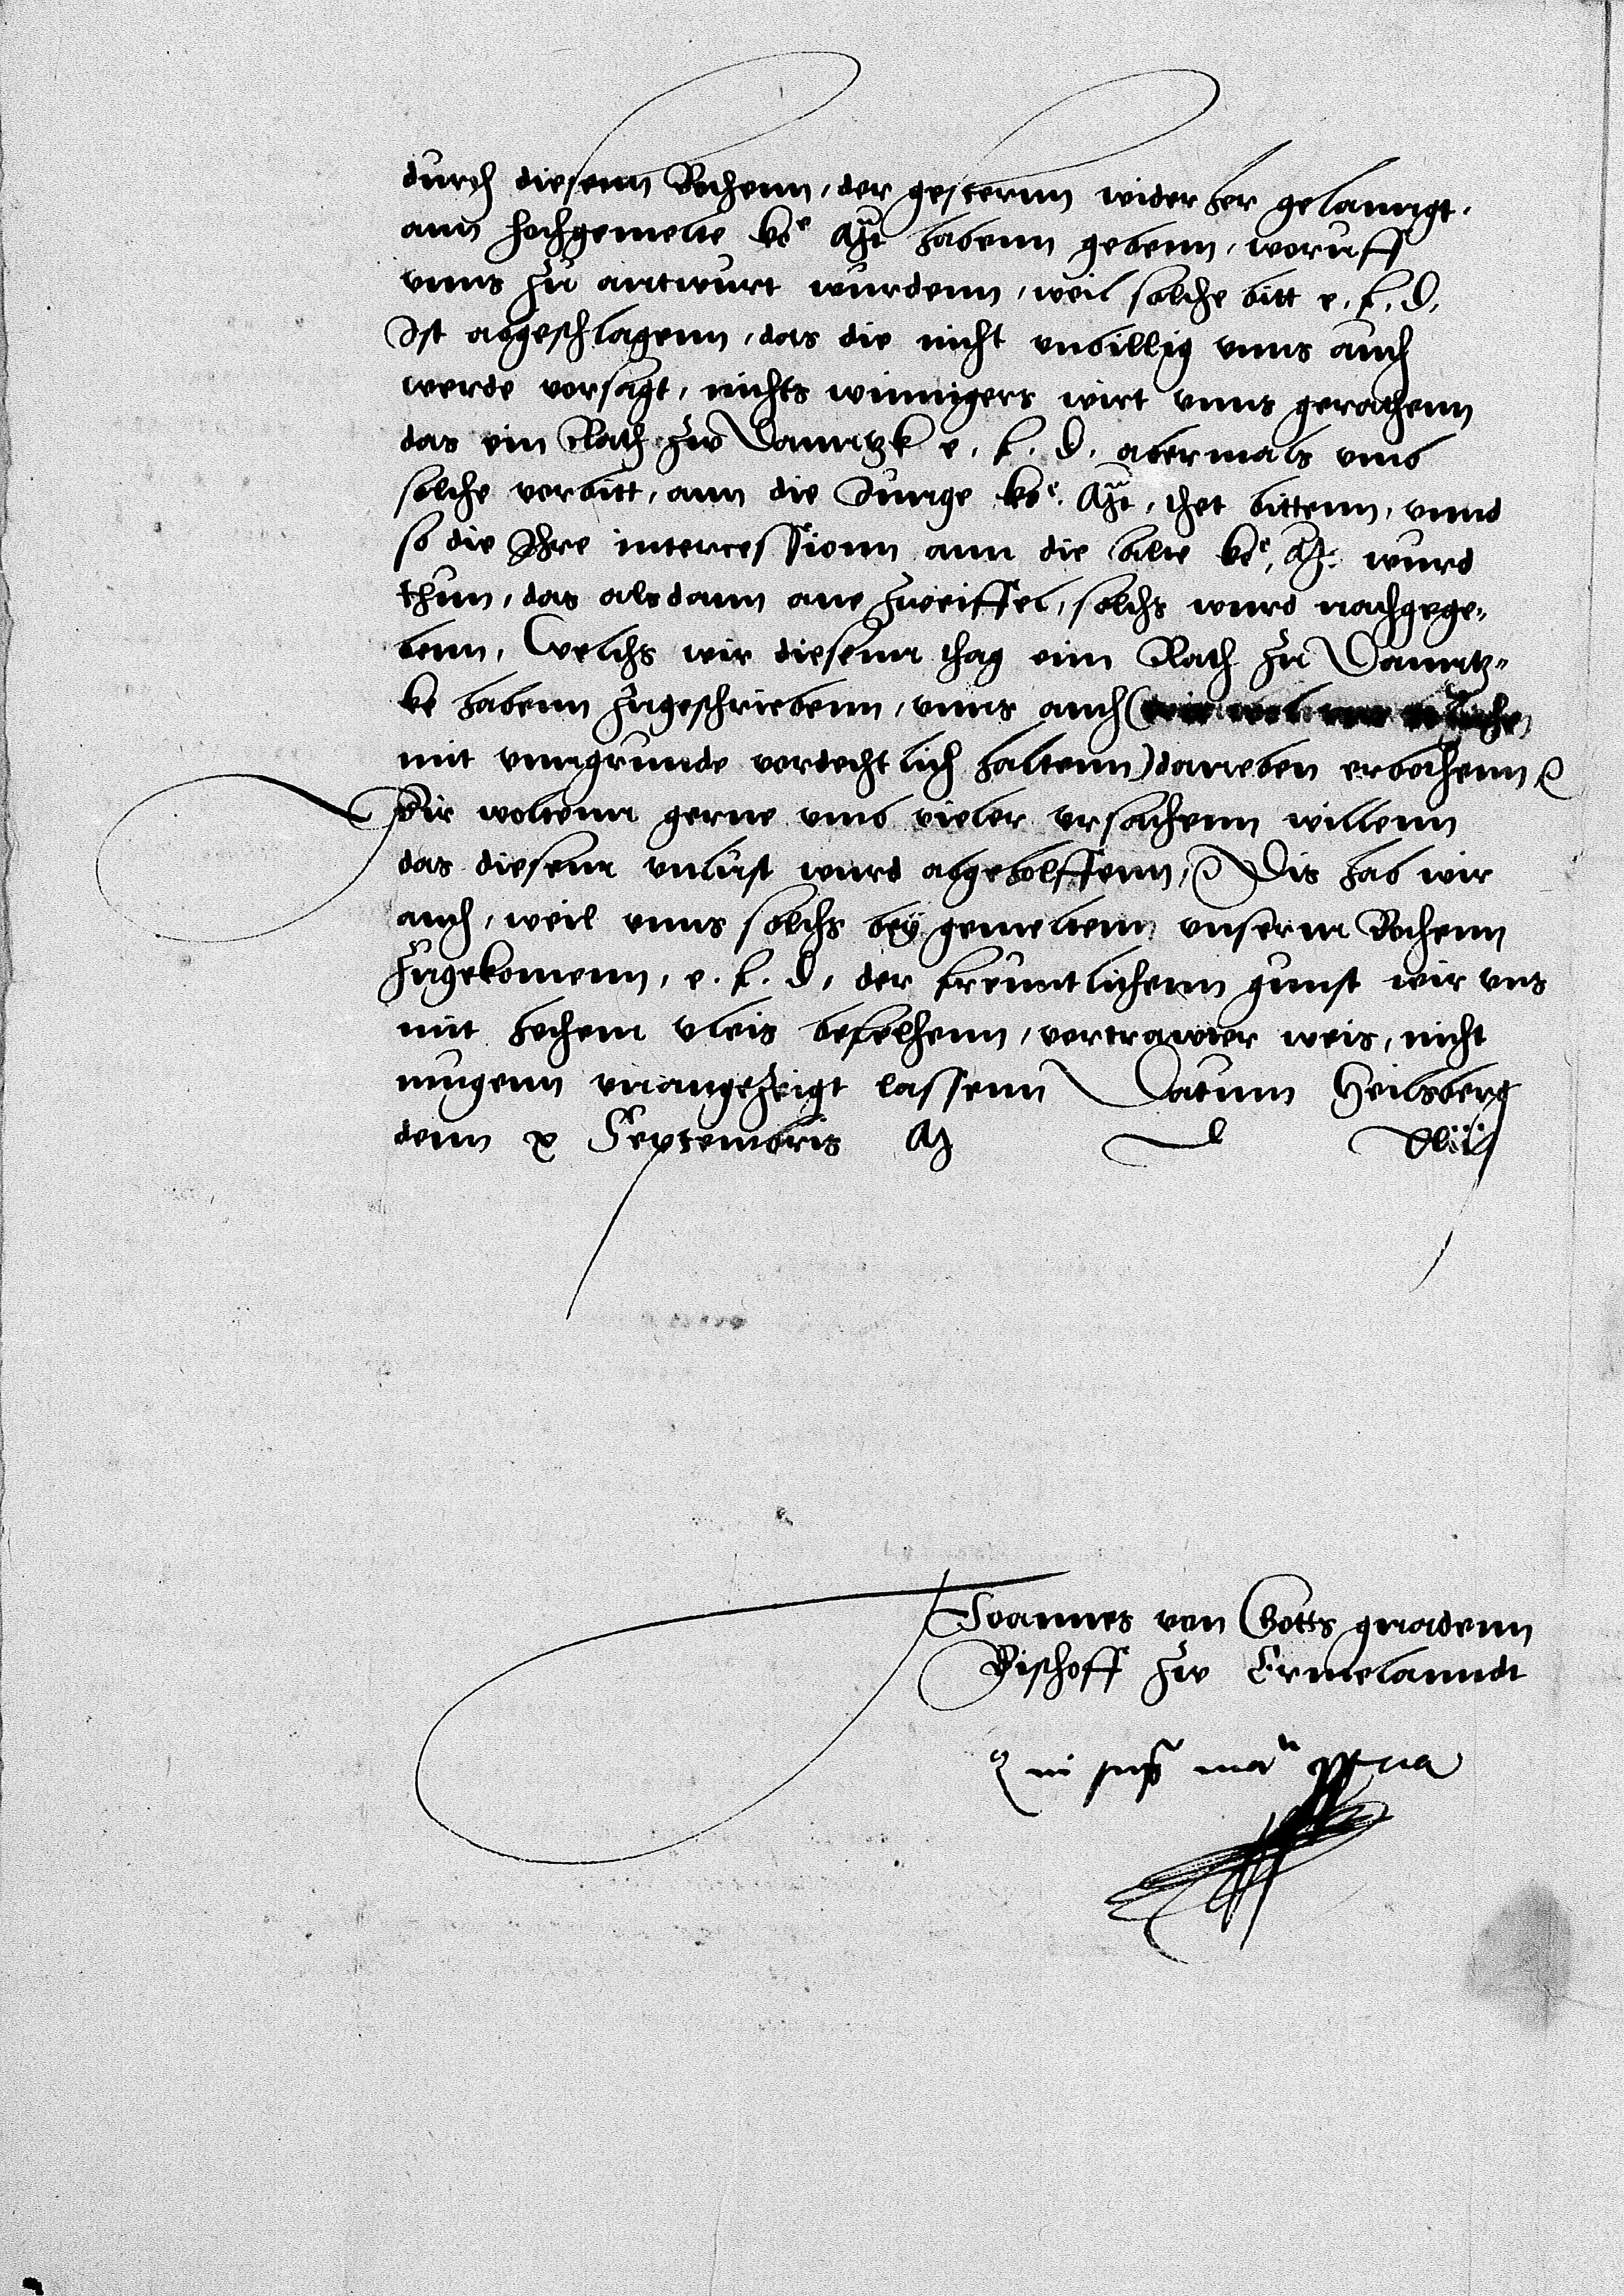 durch diesenn Bothenn, der gesternn wider her gelanngt,
ann hochgemelte ko.e Mt habenn gebenn, woruff
vnns zu antwurt wurdenn, weil solche bitt e. f. D.
Ist abgeschlagenn, das die nicht vnbillig vnns auch
werde vorsagt, nichts winnigers wirt vnns gerathenn
das ein Rath zw Danntzk e. f. D. abermals vmb
solche vorbitt, ann die Junge ko.e Mt, thet bittenn, vnnd
so die Ihre intercessionn ann die alte ko.e Mt. wurd
thun, das alsdann ane zweiffel, solchs wurd nachgege„
benn, Welchs wir diesenn thag einn Rath zu Danntz„
ke habenn zugeschriebenn, vnns auch (wie wol vns etliche
mit vnngrunde vordechtlich haltenn) darneben erbothenn
Wir woltenn gerne vmb vieler vrsachenn willenn
das diesenn vnlust wurd abgeholffenn, Dis hab wir
auch, weil vnns solchs bey gemeltem vnserm Bothenn
zugekomenn, e. f. D, der freuntlichenn gunst wir vns
mit hohem vleis befelhenn, vertrawter weis, nicht
mugenn vnangezeigt lassenn Datum Heilsberg
denn x Septembris M D xliiij
Joannes von Gotts gnadenn
Bischoff zw Ermelanndt